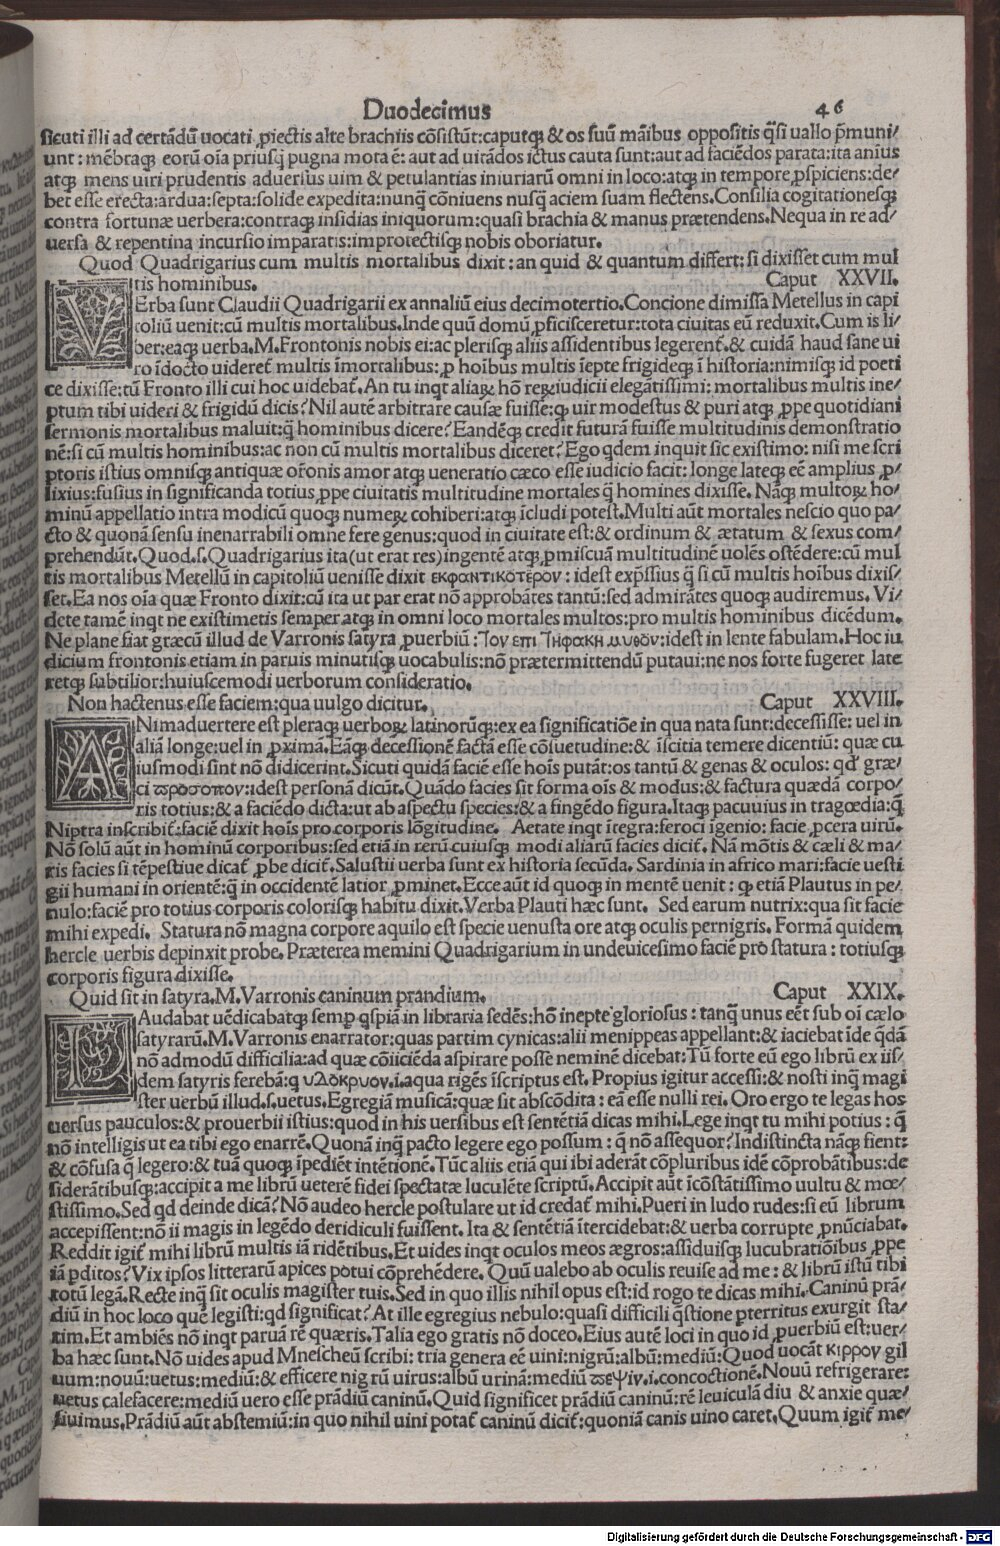 Duodecimus 46
sicuti illi ad certādū uocati ꝓiectis alte brachiis cōsistūt:caputqꝫ & os suū māibus oppositis q̄si uallo p̄muni/
unt : mēbraqꝫ eorū oīa priusq̄ pugna mota ē: aut ad uitādos ictus cauta sunt:aut ad faciēdos parata:ita anius
atqꝫ mens uiri prudentis aduersus uim & petulantias iniuriarū omni in loco:atqꝫ in tempore ꝓspiciens:de/
bet esse erecta:ardua:septa:solide expedita:nunq̄ cōniuens nusq̄ aciem suam flectens.Consilia cogitationesqꝫ
contra fortunæ uerbera:contraqꝫ insidias iniquorum:quasi brachia & manus prætendens.Nequa in re ad/
uersa & repentina incursio imparatis:improtectisqꝫ nobis oboriatur.
Quod Quadrigarius cum multis mortalibus dixit : an quid & quantum differt: si dixisset cum mul
tis hominibus. Caput XXVII.
VErba sunt Claudii Quadrigarii ex annaliū eius decimotertio.Concione dimissa Metellus in capi
toliū uenit:cū multis mortalibus.Inde quū domū ꝓficisceretur:tota ciuitas eū reduxit.Cum is li/
ber:eaqꝫ uerba.M.Frontonis nobis ei:ac plerisqꝫ aliis assidentibus legerent̄.& cuidā haud sane ui
ro īdocto uideret̄ multis īmortalibus: ꝓ hoībus multis īepte frigideqꝫ ī historia:nimisqꝫ id poeti
ce dixisse:tū Fronto illi cui hoc uidebat̄.An tu inqt aliaꝝ hō reꝝ iudicii elegātissimi: mortalibus multis ine/
ptum tibi uideri & frigidū dicis? Nil autē arbitrare causæ fuisse:ꝙ uir modestus & puri atqꝫ ꝓpe quotidiani
sermonis mortalibus maluit:q̄ hominibus dicere? Eandēqꝫ credit futurā fuisse multitudinis demonstratio
nē:si cū multis hominibus:ac non cū multis mortalibus diceret? Ego qdem inquit sic existimo: nisi me scri
ptoris istius omnisqꝫ antiquæ ōronis amor atqꝫ ueneratio cæco esse iudicio facit: longe lateqꝫ eē amplius ꝓ/
lixius:fusius in significanda totius ꝓpe ciuitatis multitudine mortales q̄ homines dixisse. Nāqꝫ multoꝝ ho/
minū appellatio intra modicū quoqꝫ numeꝝ cohiberi:atqꝫ īcludi potest.Multi aūt mortales nescio quo pa/
cto & quonā sensu inenarrabili omne fere genus:quod in ciuitate est:& ordinum & ætatum & sexus com/
prehendūt.Quod.s.Quadrigarius ita(ut erat res)ingentē atqꝫ ꝓmiscuā multitudinē uolēs ostēdere:cū mul
tis mortalibus Metellū in capitoliū uenisse dixit εκφαντικότερον : idest exp̄ssius q̄ si cū multis hoībus dixis/
set.Ea nos oīa quæ Fronto dixit:cū ita ut par erat nō approbātes tantū:sed admirātes quoqꝫ audiremus. Vi/
dete tamē inqt ne existimetis semper:atqꝫ in omni loco mortales multos:pro multis hominibus dicēdum.
Ne plane fiat græcū illud de Varronis satyra ꝓuerbiū : idest in lente fabulam.Hoc iu
dicium frontonis etiam in paruis minutisqꝫ uocabulis:nō prætermittendū putaui:ne nos forte fugeret late
retqꝫ subtilior:huiuscemodi uerborum consideratio.
Non hactenus esse faciem:qua uulgo dicitur. Caput XXVIII.
ANimaduertere est pleraqꝫ uerboꝝ latinorūqꝫ:ex ea significatiōe in qua nata sunt:decessisse: uel in
aliā longe:uel in ꝓxima.Eāqꝫ decessionē factā esse cōsuetudine:& īscitia temere dicentiū: quæ cu
iusmodi sint nō didicerint.Sicuti quidā faciē esse hoīs putāt:os tantū & genas & oculos: qd græ/
ci ϖροσοπον:idest personā dicūt.Quādo facies sit forma oīs & modus:& factura quædā corpo/
ris totius:& a faciēdo dicta:ut ab aspectu species:& a fingēdo figura.Itaqꝫ pacuuius in tragœdia:q̄
Niptra inscribit̄:faciē dixit hoīs pro corporis lōgitudine. Aetate inqt ītegra:feroci igenio: facie ꝓcera uirū.
Nō solū aūt in hominū corporibus:sed etiā in rerū cuiusqꝫ modi aliarū facies dicit̄. Nā mōtis & cæli & ma/
ris facies si tēpestiue dicat̄ ꝓbe dicit̄.Salustii uerba sunt ex historia secūda. Sardinia in africo mari:facie uesti
gii humani in orientē:q̄ in occidentē latior ꝓminet.Ecce aūt id quoqꝫ in mentē uenit : ꝙ etiā Plautus in pe/
nulo:faciē pro totius corporis colorisqꝫ habitu dixit.Verba Plauti hæc sunt. Sed earum nutrix:qua sit facie
mihi expedi. Statura nō magna corpore aquilo est specie uenusta ore atqꝫ oculis pernigris. Formā quidem
hercle uerbis depinxit probe. Præterea memini Quadrigarium in undeuicesimo faciē pro statura : totiusqꝫ
corporis figura dixisse.
Quid sit in satyra.M.Varronis caninum prandium. Caput XXIX.
LAudabat uēdicabatqꝫ semꝑ qspiā in libraria sedēs:hō inepte gloriosus : tanq̄ unus eēt sub oī cælo
satyrarū.M.Varronis enarrator:quas partim cynicas:alii menippeas appellant:& iaciebat īde q̄dā
nō admodū difficilia:ad quæ cōiiciēda aspirare posse neminē dicebat:Tū forte eū ego librū ex iis/
dem satyris ferebā:q υλδοκρυον.i.aqua rigēs īscriptus est. Propius igitur accessi:& nosti inq̄ magi
ster uerbū illud.s.uetus.Egregiā musicā:quæ sit abscōdita : eā esse nulli rei. Oro ergo te legas hos
uersus pauculos:& prouerbii istius:quod in his uersibus est sentētiā dicas mihi.Lege inqt tu mihi potius : q̄
nō intelligis ut ea tibi ego enarrē.Quonā inq̄ pacto legere ego possum : q̄ nō assequor? Indistincta nāqꝫ fient:
& cōfusa q̄ legero:& tuā quoqꝫ īpediēt intētionē.Tūc aliis etiā qui ibi aderāt cōpluribus idē cōprobātibus:de
siderātibusqꝫ:accipit a me librū ueterē fidei spectatæ luculēte scriptū.Accipit aūt īcōstātissimo uultu & mœ/
stissimo.Sed qd deinde dicā? Nō audeo hercle postulare ut id credat̄ mihi.Pueri in ludo rudes:si eū librum
accepissent:nō ii magis in legēdo deridiculi fuissent. Ita & sentētiā ītercidebat:& uerba corrupte ꝓnūciabat.
Reddit igit̄ mihi librū multis iā ridētibus.Et uides inqt oculos meos ægros:assiduisqꝫ lucubratiōibus ꝓpe
iā ꝑditos? Vix ipsos litterarū apices potui cōprehēdere. Quū ualebo ab oculis reuise ad me : & librū istū tibi
totū legā.Recte inq̄ sit oculis magister tuis.Sed in quo illis nihil opus est:id rogo te dicas mihi.Caninū prā/
diū in hoc loco quē legisti:qd significat? At ille egregius nebulo:quasi difficili q̄stione ꝑterritus exurgit sta/
tim.Et ambiēs nō inqt paruā rē quæris.Talia ego gratis nō doceo.Eius autē loci in quo id ꝓuerbiū est:uer/
ba hæc sunt.Nō uides apud Mnescheū scribi: tria genera eē uini:nigrū:albū:mediū: Quod uocāt κιρρον gil
uum:nouū:uetus:mediū:& efficere nigrū uirus:albū urinā:mediū ϖεψιν.i.concoctionē.Nouū refrigerare:
uetus calefacere:mediū uero esse prādiū caninū.Quid significet prādiū caninū:rē leuiculā diu & anxie quæ/
siuimus.Prādiū aūt abstemiū:in quo nihil uini potat̄ caninū dicit̄:quoniā canis uino caret.Quum igit̄ me/
Digitalisierung gefördert durch die Deutsche Forschungsgemeinschaft - DFG